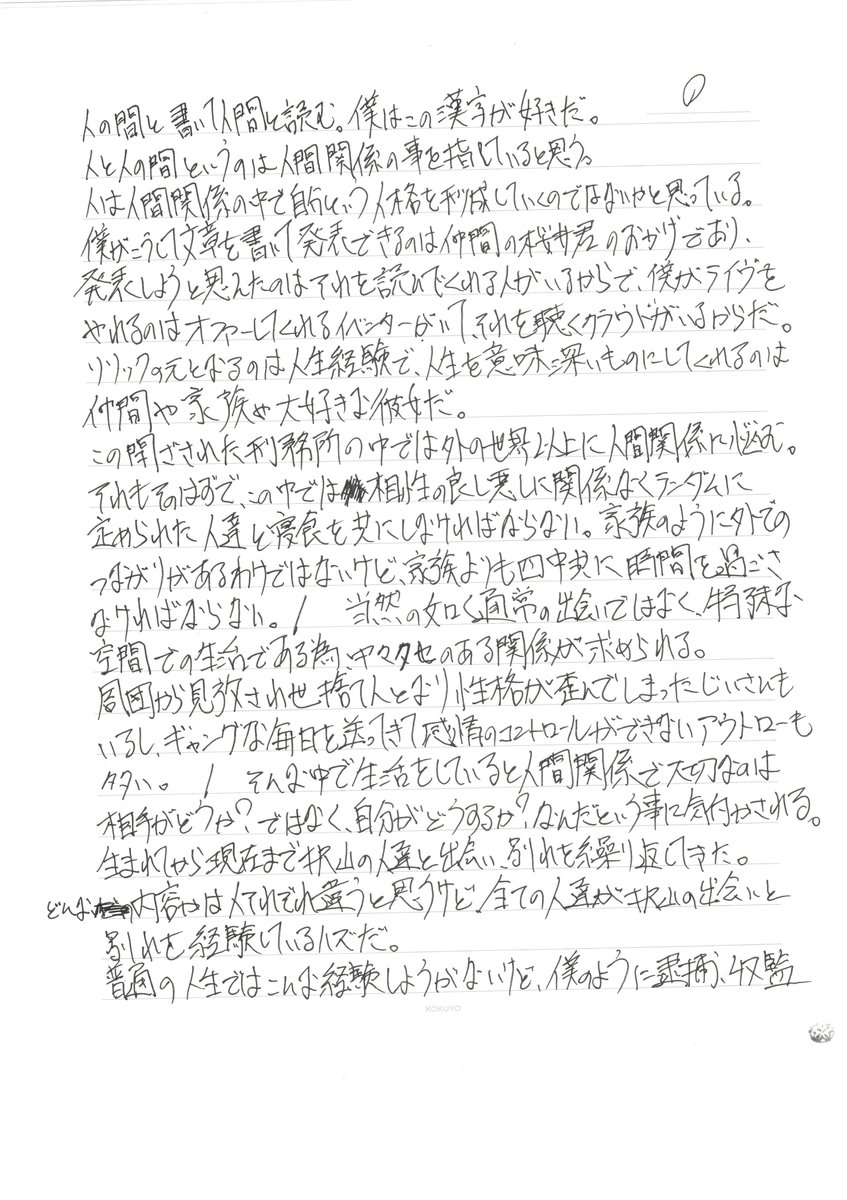 ①
人の間と書いて人間と読む。僕はこの漢字が好きだ。
人と人の間というのは人間関係の事を指していると思う。
人は人間関係の中で自分という人格を形成していくのではないかと思っている。
僕がこうして文章を書いて発表できるのは仲間の桜井君のおかげであり、
発表しようと思えたのはそれを読んでくれる人がいるからで、僕がライヴを
やれるのはオファーしてくれるイベンターがいて、それを聴くクラウドがいるからだ。
リリックの元となるのは人生経験で、人生を意味深いものにしてくれるのは
仲間や家族や大好きな彼女だ。
この閉ざされた刑務所の中では外の世界以上に人間関係に悩む。
それもそのはずで、この中では相性の良し悪しに関係なくランダムに
定められた人達と寝食を共にしなければならない。家族のように外での
つながりがあるわけではないけど、家族よりも四六時中共に時間を過ごさ
なければならない。/ 当然の如く通常の出会いではなく、特殊な
空間での生活である為、中々クセのある関係が求められる。
周囲から見放され世捨て人となり性格が歪んでしまったじいさんも
いるし、ギャングな毎日を送ってきて感情のコントロールができないアウトローも
多い。/ そんな中で生活をしていると人間関係で大切なのは
相手がどうか?ではなく、自分がどうするか?なんだという事に気付かされる。
生まれてから現在まで沢山の人達と出会い、別れを繰り返してきた。
どんな内容かは人それぞれ違うと思うけど、全ての人達が沢山の出会いと
別れを経験しているハズだ。
普通の人生ではこんな経験しようがないけど、僕のように逮捕、収監
KOKUYO